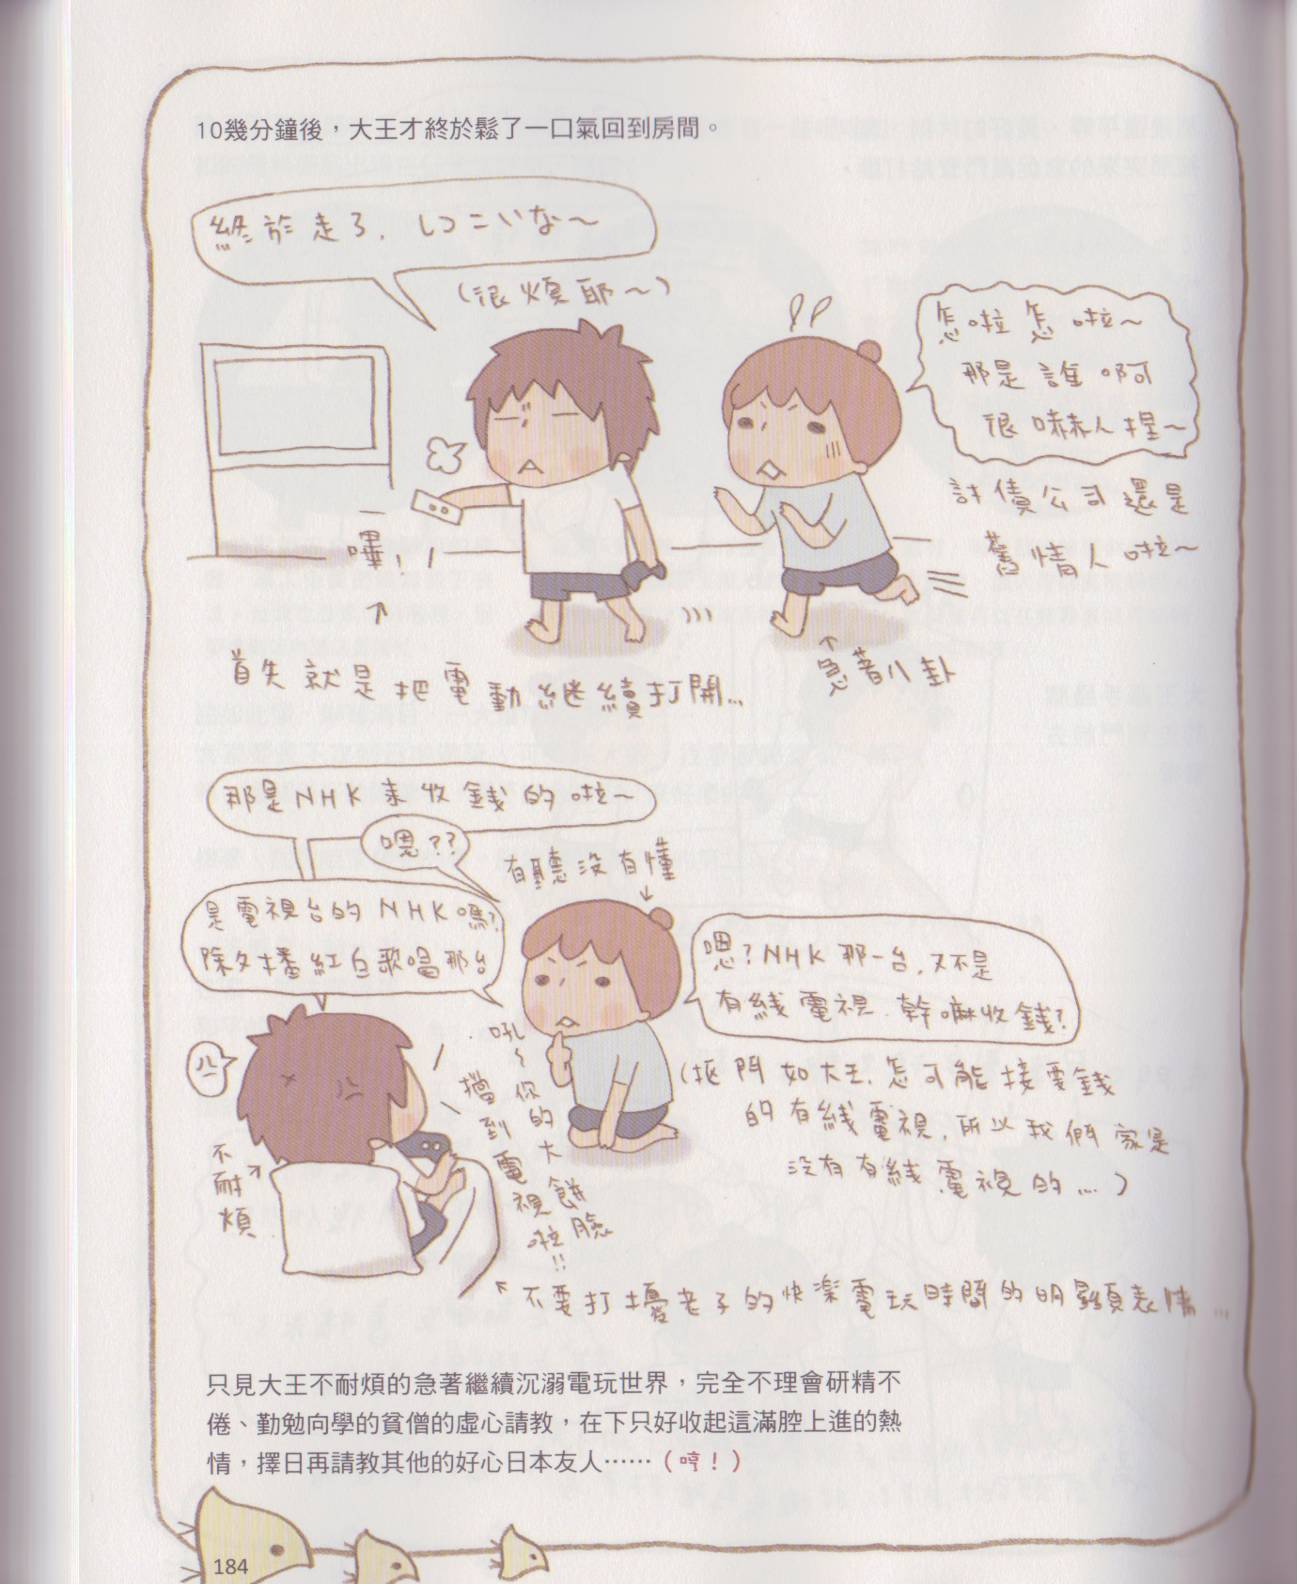 10幾分鐘後，大王才終於鬆了一口氣回到房間。
終於走了. しつこいな～
(很煩耶～)
怎啦怎啦～
那是誰啊
很嚇人捏～
討債公司還是
舊情人啦～
嗶!
首先就是把電動繼續打開...
急著八卦
那是NHK來收錢的啦～
嗯??
有聽沒有懂
是電視台的NHK嗎?
除夕播紅白歌唱那台
嗯?NHK那一台,又不是
有線電視.幹嘛收錢?
(摳門如大王,怎可能接要錢
的有線電視,所以我們家是
沒有有線電視的...)
不耐煩
吼～你的大餅臉
擋到電視啦!!
不要打擾老子的快樂電玩時間的明顯表情...
只見大王不耐煩的急著繼續沉溺電玩世界，完全不理會研精不
倦、勤勉向學的貧僧的虛心請教，在下只好收起這滿腔上進的熱
情，擇日再請教其他的好心日本友人⋯⋯（哼！）
184